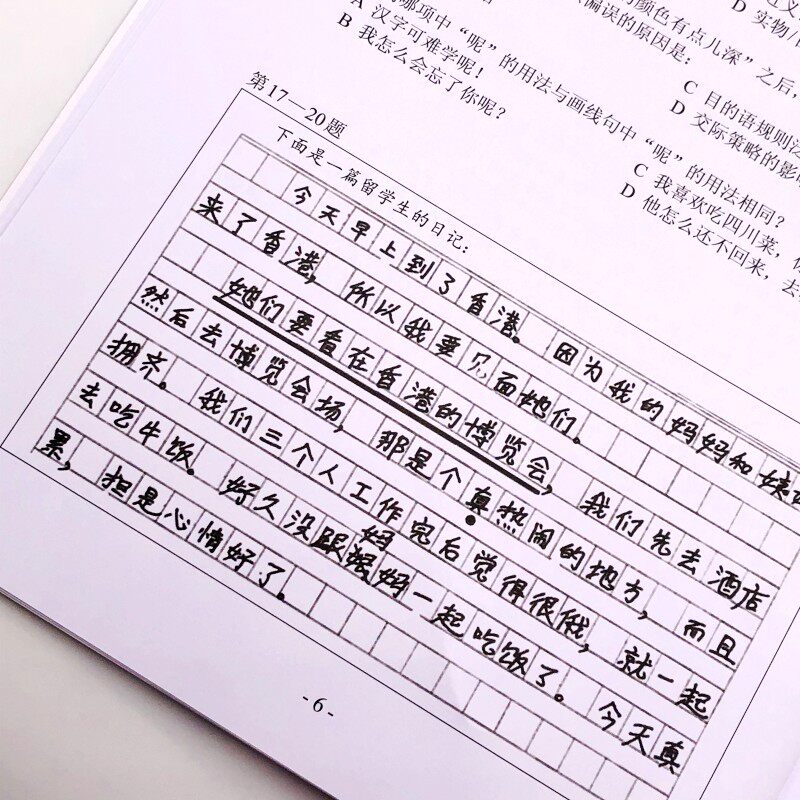 D 实物/
的颜色有点儿深”之后，
偏误的原因是：
C 目的语规则泛
D 交际策略的影
哪项中“呢”的用法与画线句中“呢”的用法相同？
A 汉字可难学呢！ C 我喜欢吃四川菜，
B 我怎么会忘了你呢？ D 他怎么还不回来，去
第17—20题
下面是一篇留学生的日记：
今天早上到了香港。因为我的妈妈和姨
来了香港，所以我要见面她们。
她们要看在香港的博览会，我们先去酒店
然后去博览会场，那是个真热闹的地方，而且
拥齐。我们三个人工作完后觉得很饿，就一起
妈
去吃牛饭。好久没跟姨妈一起吃饭了。今天真
累，担是心情好了。
- 6 -